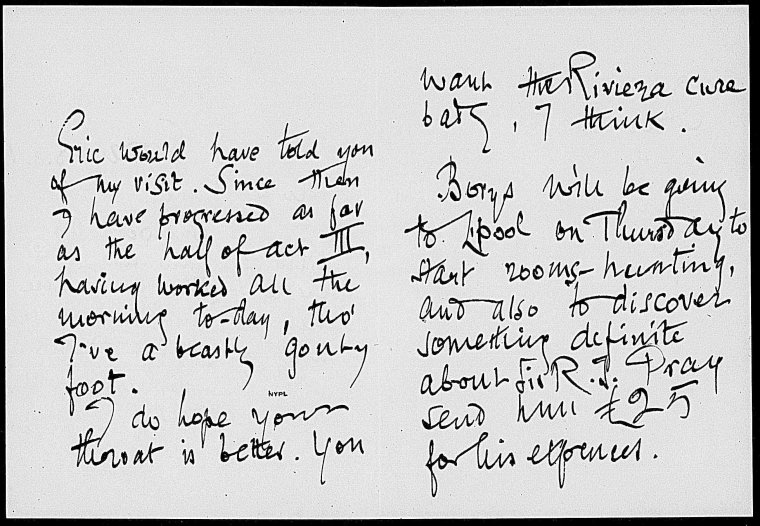 Eric would have told you
of my visit. Since then
I have progressed as far
as the half of act III,
having worked all the
morning to-day, tho'
I've a beastly gouty
foot.
I do hope your
throat is better. You
NYPL
want the Riviera cure
badly, I think.
Borys will be going
to L'pool on Thursday to
start rooms-hunting,
and also to discover
something definite
about Sir R. J. Pray
send him £25
for his expences.